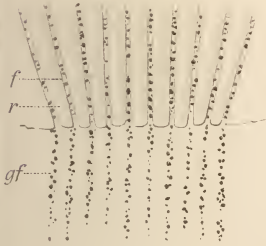 f
r
gf